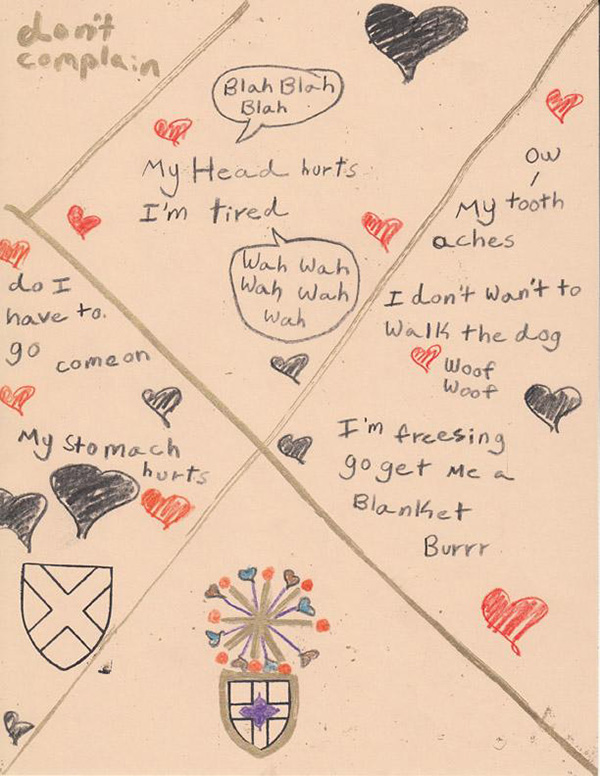 don't
complain
Blah Blah
Blah
My Head hurts
I'm tired
Wah Wah
Wah Wah
Wah
ow
My tooth
aches
do I
have to.
go come on
I don't wan't to
walk the dog
Woof
Woof
My stomach
hurts
I'm freesing
go get me a
Blanket
Burrr